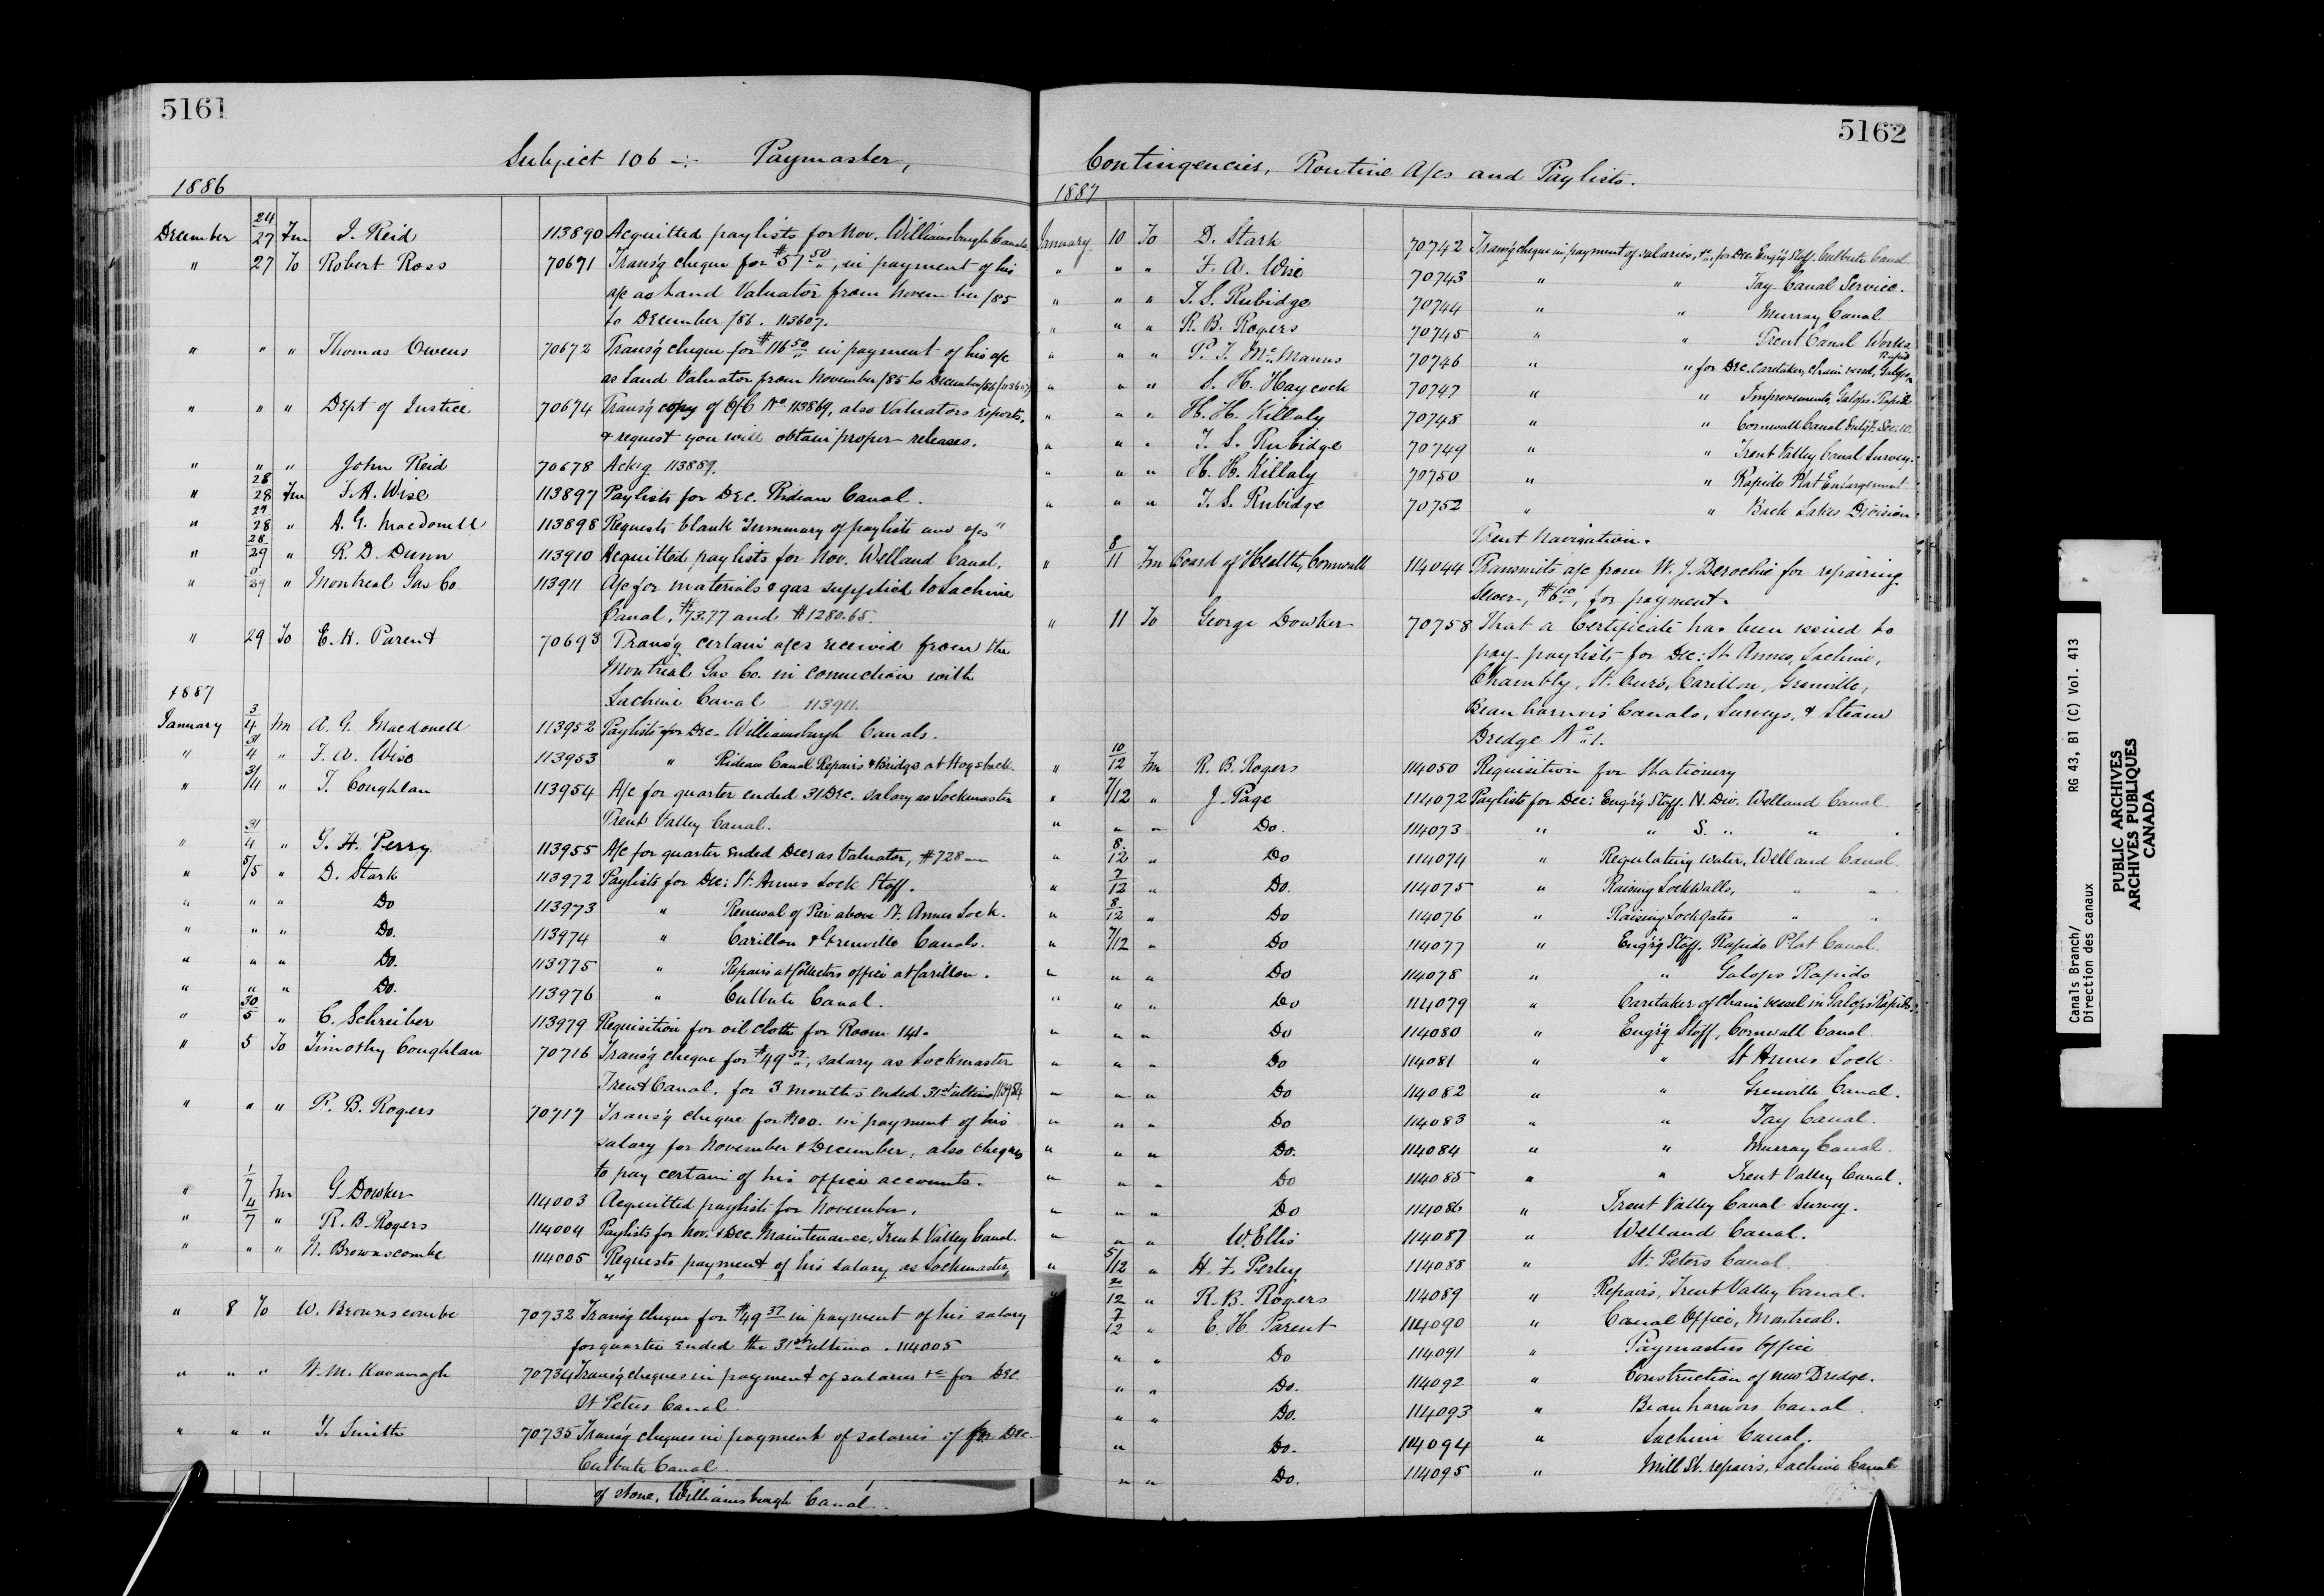 5161
Subject 106 -:- Paymaster,
1886
December 24/27 Fm J. Reid 113890 Acquitted paylists for Nov. Williamsburgh Canals
" 27 To Robert Ross 70671 Trans'g cheque for $57 50, in payment of his
a/c as Land Valuator from November /85
to December /86. 113607.
" " " Thomas Owens 70672 Trans'g cheque for $116 50 in payment of his a/c
as Land Valuator from November /85 to December /86 /113607/
" " " Dept of Justice 70674 Trans'g copy of O/C No 113869, also Valuators reports,
& request you will obtain proper releases.
" " " John Reid 70678 Ack'g 113889.
" 28/28 Fm F. A. Wise 113897 Paylists for Dec. Rideau Canal.
" 27/28 " A. G. Macdonell 113898 Requests blank "Summary of paylists and a/cs"
" 28/29 " R. D. Dunn 113910 Acquitted paylists for Nov. Welland Canal.
" "/29 " Montreal Gas Co. 113911 A/c for materials & gas supplied to Lachine
Canal, $73.77 and $1280.65.
" 29 To E. H. Parent 70693 Trans'g certain a/cs received from the
Montreal Gas Co. in connection with
Lachine Canal 113911
1887
January 3/4 Fm A. G. Macdonell 113952 Paylists for Dec. Williamsburgh Canals.
" 31/4 " F. A. Wise 113953 " Rideau Canal Repairs & Bridge at Hogsback.
" 31/4 " T. Coughlan 113954 A/c for quarter ended 31 Dec. salary as Lockmaster
Trent Valley Canal.
" 31/4 " T. H. Perry 113955 A/c for quarter ended Decr as Valuator, $728
" 5/5 " D. Stark 113972 Paylists for Dec: St. Annes Lock Staff.
" " " Do 113973 " Renewal of Pier above St. Annes Lock.
" " " Do. 113974 " Carillon & Grenville Canals.
" " " Do. 113975 " Repairs at Collectors office at Carillon.
" " " Do. 113976 " Culbute Canal.
" 30/5 " C. Schreiber 113979 Requisition for oil cloth for Room 141.
" 5 To Timothy Coughlan 70716 Trans'g cheque for $49 37, salary as Lockmaster
Trent Canal, for 3 months ended 31st ultimo 113954
" " " R. B. Rogers 70717 Trans'g cheque for $100. in payment of his
salary for November & December, also cheques
to pay certain of his office accounts.
" 1/7 Fm G Dowker 114003 Acquitted paylists for November.
" 4/7 " R. B. Rogers 114004 Paylists for Nov. & Dec. Maintenance, Trent Valley Canal.
" " " N. Brownscombe 114005 Requests payment of his salary as Lockmaster,
" 8 To W. Brownscombe 70732 Trans'g cheque for $49 37 in payment of his salary
for quarter ended the 31st ultimo. 114005
" " " W. M. Kavanagh 70734 Trans'g cheques in payment of salaries &c for Dec
St Peters Canal.
" " " T. Smith 70735 Trans'g cheques in payment of salaries if for Dec.
Culbute Canal
of stone, Williamsburgh Canal.
5162
Contingencies, Routine A/cs and Paylists.
1887
January 10 To D. Stark 70742 Trans'g cheque in payment of salaries, &c, for Dec Eng'g Staff. Culbute Canal
" " " F. A. Wise 70743 " " Tay Canal Service.
" " " T. S. Rubidge 70744 " " Murray Canal
" " " R. B. Rogers 70745 " " Trent Canal Works
" " " P. J. McManus 70746 " " for Dec. Caretaker, Chain vessel, Galops Rapids
" " " S. H. Haycock 70747 " " Improvements, Galops Rapids
" " " H. H. Killaly 70748 " " Cornwall Canal Enlgt. Sec. 10.
" " " T. S. Rubidge 70749 " " Trent Valley Canal Survey.
" " " H. H. Killaly 70750 " " Rapide Plat Enlargement
" " " T. S. Rubidge 70752 " " Back Lakes Division
Trent Navigation.
" 8/11 Fm Board of Health, Cornwall 114044 Transmits a/c from W. J. Derochie for repairing
Sewer, $6 10, for payment.
" 11 To George Dowker 70758 That a Certificate has been issued to
pay paylists for Dec: St. Annes, Lachine,
Chambly, St. Ours, Carillon, Grenville,
Beauharnois Canals, Surveys, & Steam
Dredge No 1.
" 10/12 Fm R. B. Rogers 114050 Requisition for Stationery
" 7/12 " J. Page 114072 Paylists for Dec: Eng'r'g Staff. N. Div. Welland Canal
" " " Do. 114073 " " S. " " "
" 8/12 " Do 114074 " Regulating water, Welland Canal
" 7/12 " Do. 114075 " Raising Lockwalls, " "
" 8/12 " Do 114076 " Raising Lockgates " "
" 7/12 " Do 114077 " Eng'r'g Staff. Rapide Plat Canal.
" " " Do 114078 " " Galops Rapids
" " " Do 114079 " Caretaker of Chain Vessel in Galops Rapids.
" " " Do 114080 " Eng'r'g Staff, Cornwall Canal.
" " " Do 114081 " " St Annes Lock.
" " " Do 114082 " " Grenville Canal.
" " " Do 114083 " " Tay Canal.
" " " Do. 114084 " " Murray Canal.
" " " Do 114085 " " Trent Valley Canal.
" " " Do 114086 " Trent Valley Canal Survey.
" " " W. Ellis 114087 " Welland Canal.
" 5/12 " H. F. Perley 114088 " St. Peters Canal
" 20/12 " R. B. Rogers 114089 " Repairs, Trent Valley Canal.
7/12 " E. H. Parent 114090 " Canal Office, Montreal.
" " Do 114091 " Paymasters Office
" " Do. 114092 " Construction of new Dredge.
" " Do. 114093 " Beauharnois Canal
" Do. 114094 " Lachine Canal.
" " Do. 114095 " Mill St. repairs, Lachine Canal
Canals Branch/
Direction des canaux
RG 43, B1 (C) Vol. 413
PUBLIC ARCHIVES
ARCHIVES PUBLIQUES
CANADA